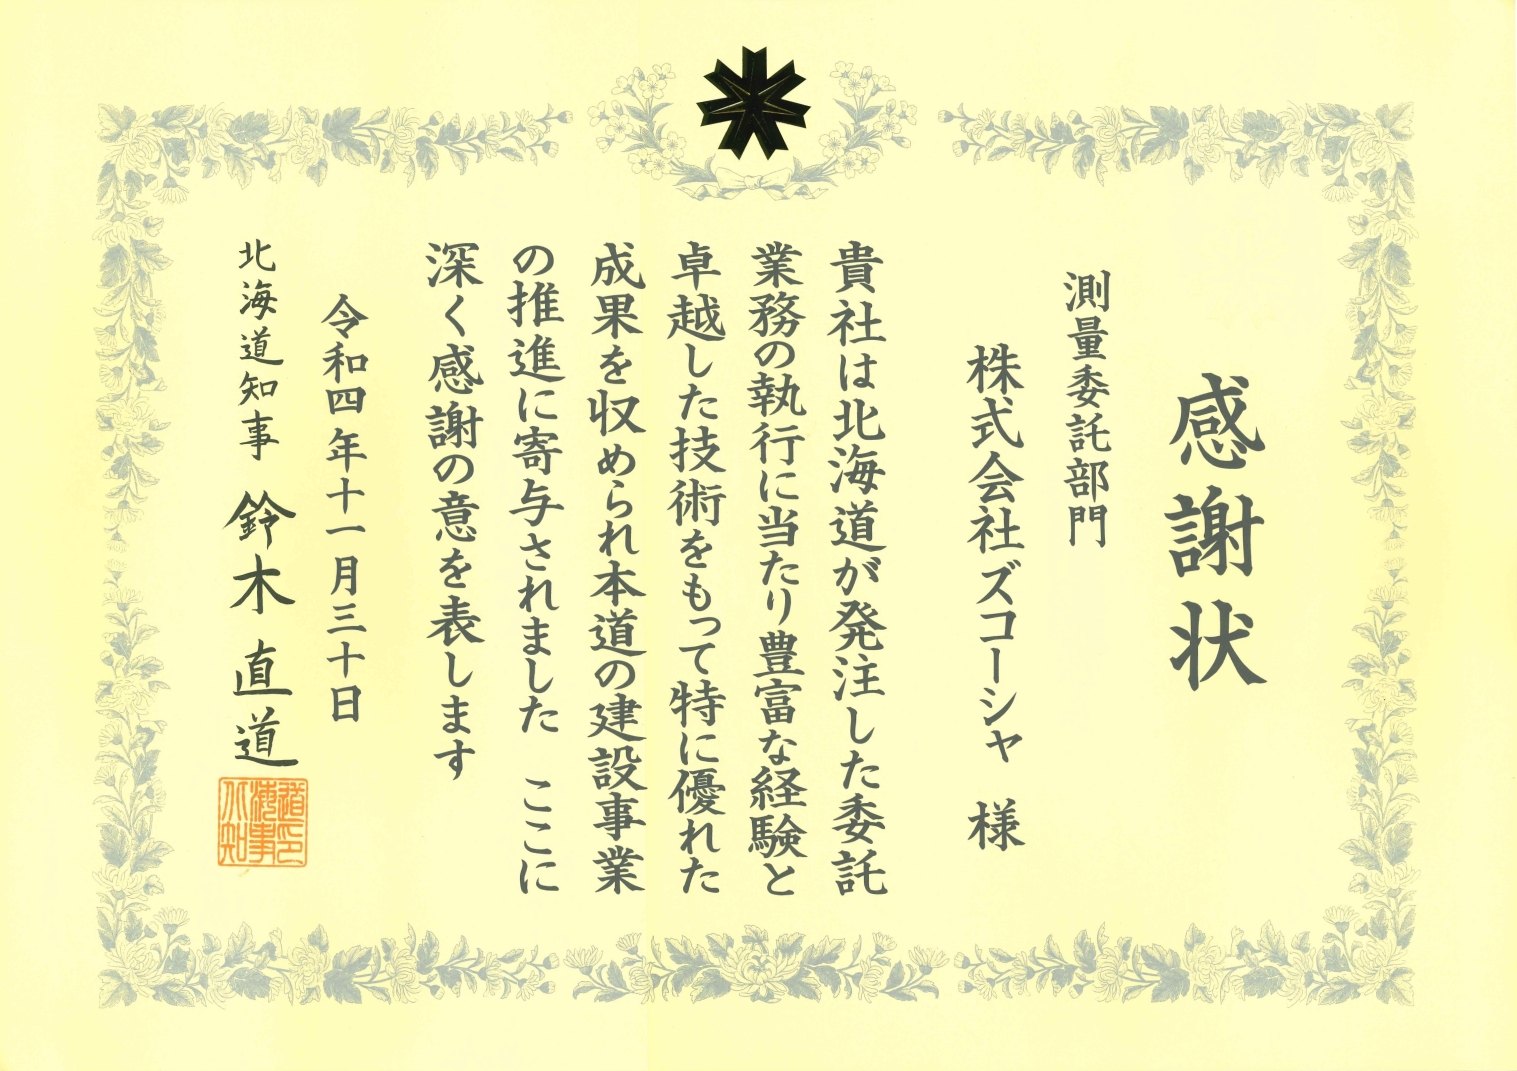 感謝状
測量委託部門
株式会社ズコーシャ 様
貴社は北海道が発注した委託
業務の執行に当たり豊富な経験と
卓越した技術をもって特に優れた
成果を収められ本道の建設事業
の推進に寄与されました ここに
深く感謝の意を表します
令和四年十一月三十日
北海道知事 鈴木直道
道印
海事
北知